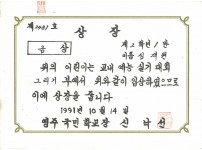 제2981호
상장
금상
제2학년1반
위의 어린이는 교내 예능 실기 대회
그리기 부에서 위와같이 입상하였으므로
이에 상장을 줍니다
1991년 10월 14일
영주국민학교장 신 낙 선